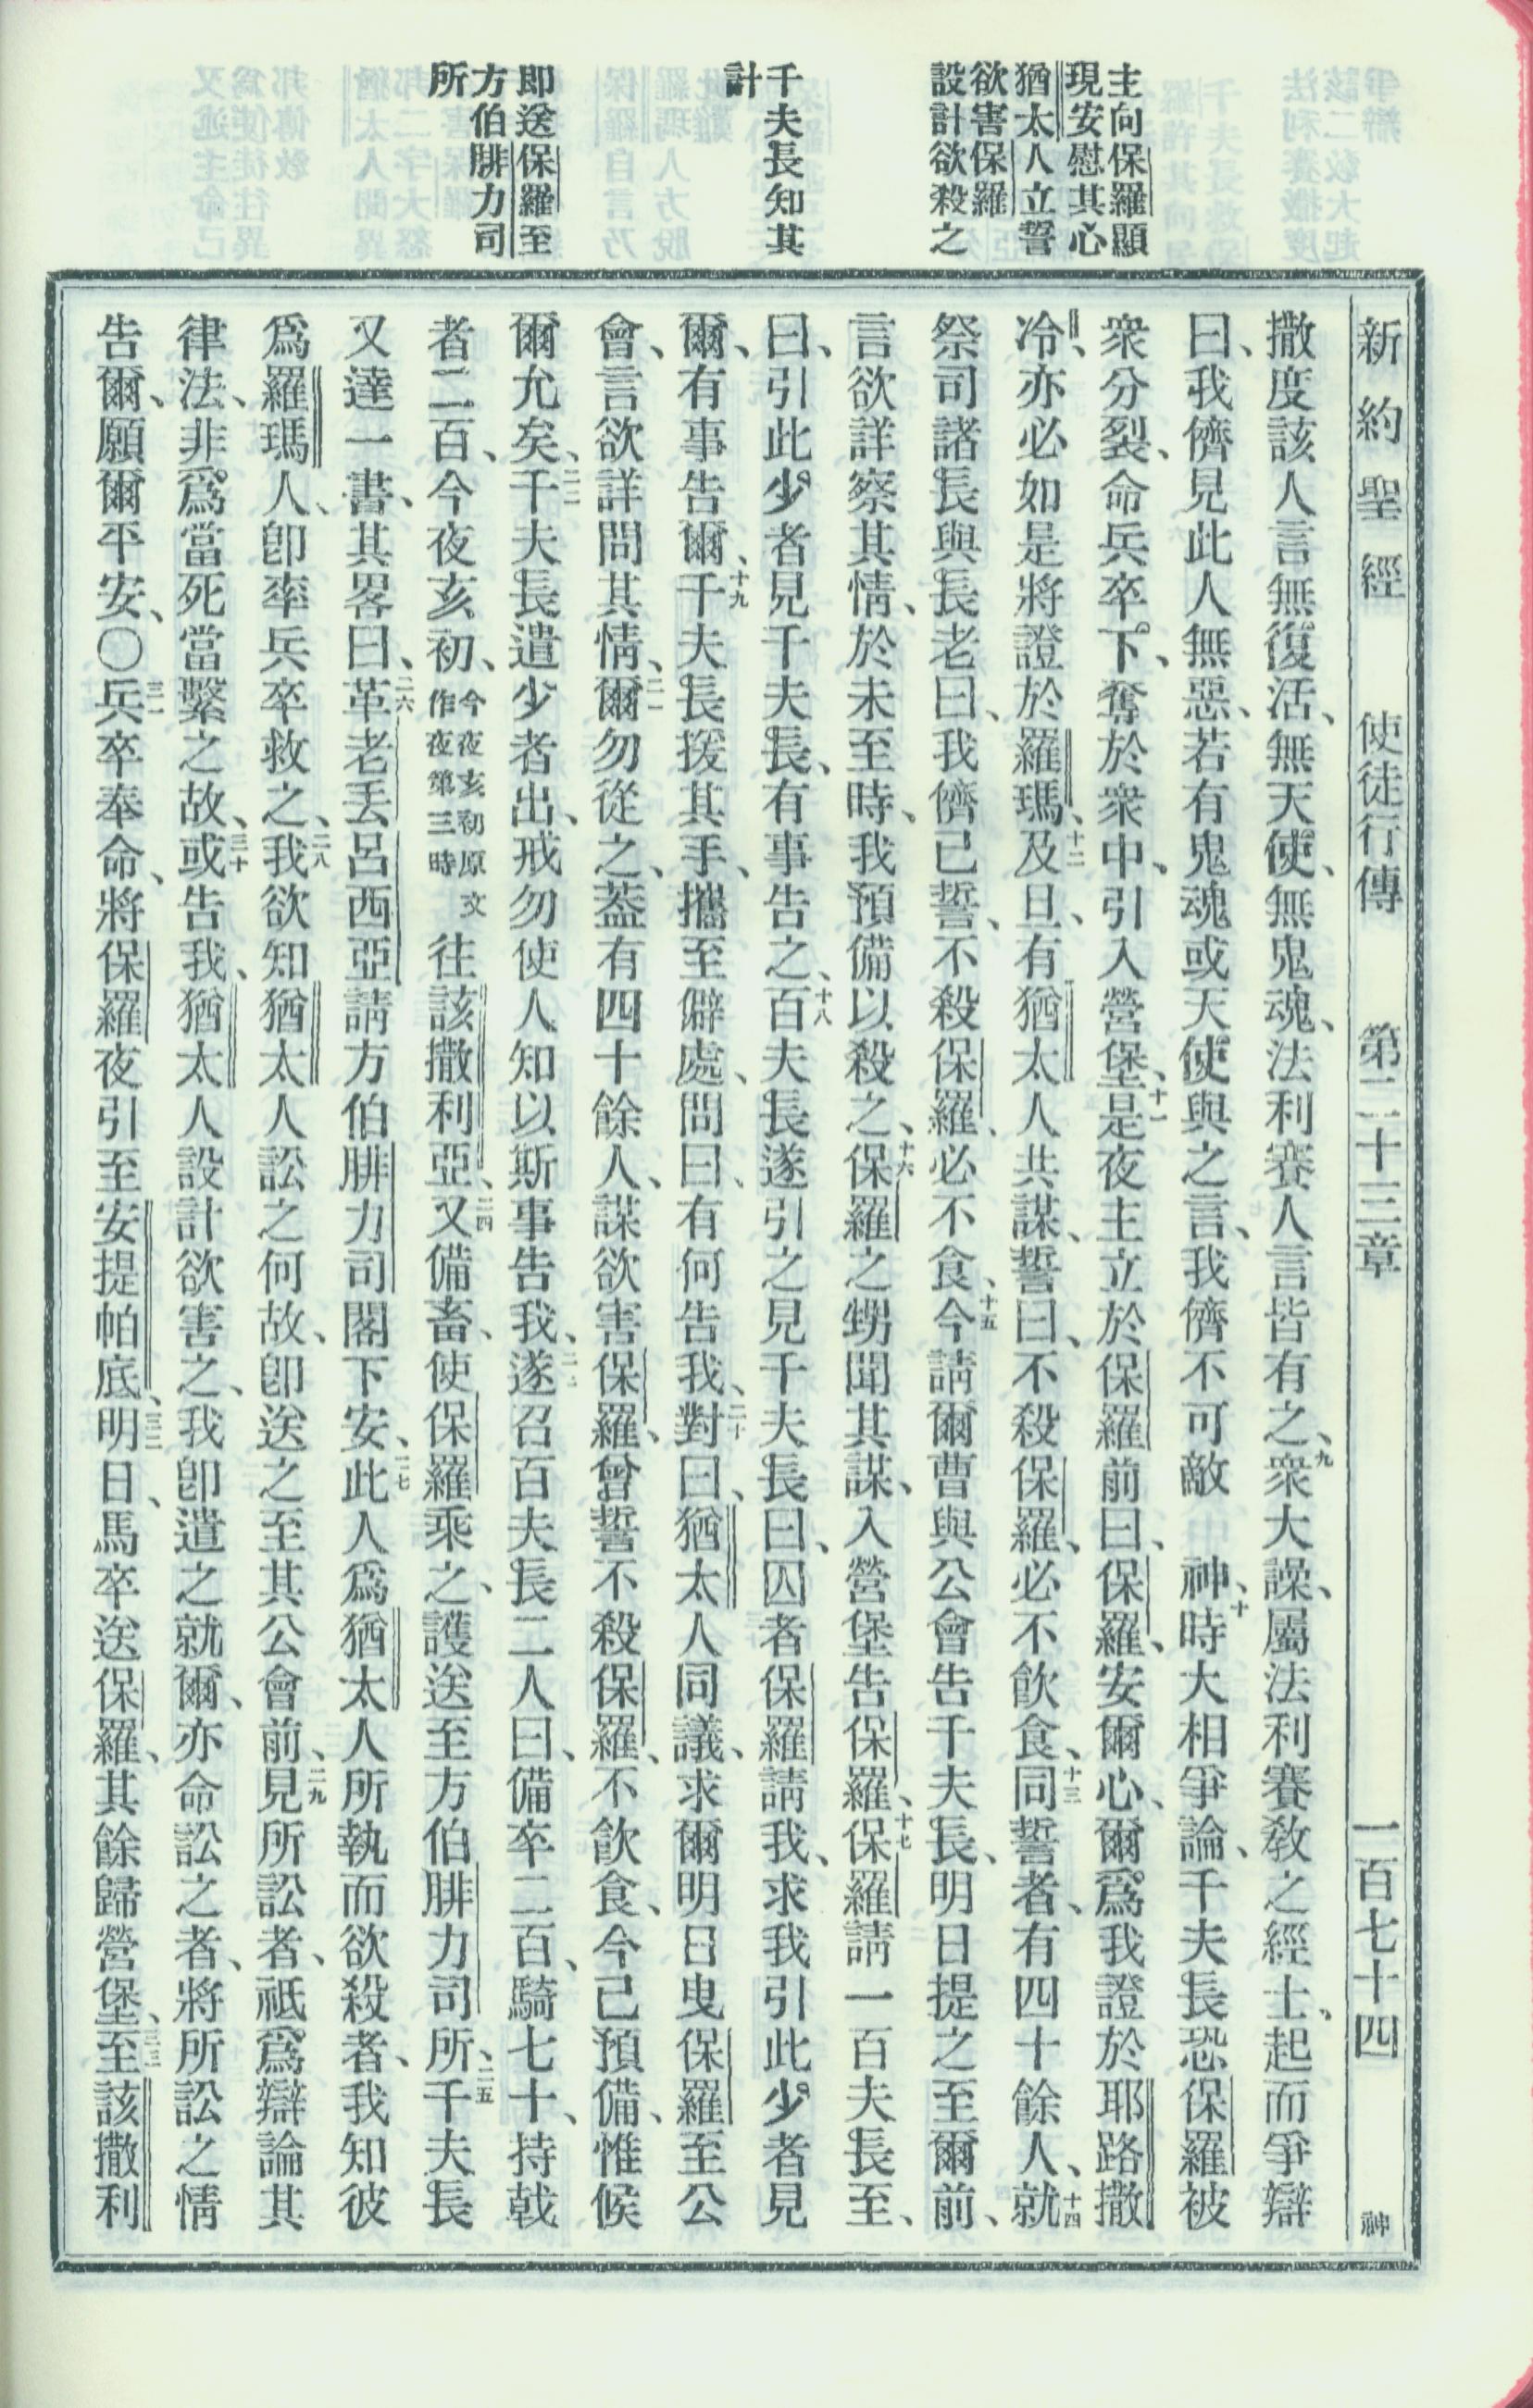 新約聖經 使徒行傳 第二十三章 一百七十四 神
主向保羅顯
現安慰其心
猶太人立誓
欲害保羅
設計欲殺之
千夫長知其
計
即送保羅至
方伯腓力司
所
撒度該人言無復活、無天使、無鬼魂、法利賽人言皆有之、九衆大譟、屬法利賽教之經士、起而爭辯
曰、我儕見此人無惡、若有鬼魂或天使與之言、我儕不可敵 神、十時大相爭論、千夫長恐保羅被
衆分裂、命兵卒下、奪於衆中、引入營堡、十一是夜主立於保羅前曰、保羅、安爾心、爾爲我證於耶路撒
冷、亦必如是將證於羅瑪、十二及旦、有猶太人共謀、誓曰、不殺保羅、必不飲食、十三同誓者、有四十餘人、十四就
祭司諸長與長老曰、我儕已誓、不殺保羅、必不食、十五今請爾曹與公會告千夫長、明日提之至爾前、
言欲詳察其情、於未至時、我預備以殺之、十六保羅之甥聞其謀、入營堡告保羅、十七保羅請一百夫長至、
曰、引此少者見千夫長、有事告之、十八百夫長遂引之見千夫長曰、囚者保羅請我、求我引此少者見
爾、有事告爾、十九千夫長援其手、攜至僻處、問曰、有何告我、二十對曰、猶太人同議、求爾明日曳保羅至公
會、言欲詳問其情、二一爾勿從之、蓋有四十餘人、謀欲害保羅、曾誓不殺保羅、不飲食、今已預備、惟候
爾允矣、二二千夫長遣少者出、戒勿使人知以斯事告我、二三遂召百夫長二人曰、備卒二百、騎七十、持戟
者二百、今夜亥初、今夜亥初原文作夜第三時往該撒利亞、二四又備畜、使保羅乘之、護送至方伯腓力司所、二五千夫長
又達一書、其畧曰、二六革老丢呂西亞請方伯腓力司閣下安、二七此人爲猶太人所執而欲殺者、我知彼
爲羅瑪人、卽率兵卒救之、二八我欲知猶太人訟之何故、卽送之至其公會前、二九見所訟者、祗爲辯論其
律法、非爲當死當繫之故、三十或告我、猶太人設計欲害之、我卽遣之就爾、亦命訟之者、將所訟之情
告爾、願爾平安、〇三一兵卒奉命、將保羅夜引至安提帕底、三二明日、馬卒送保羅、其餘歸營堡、三三至該撒利